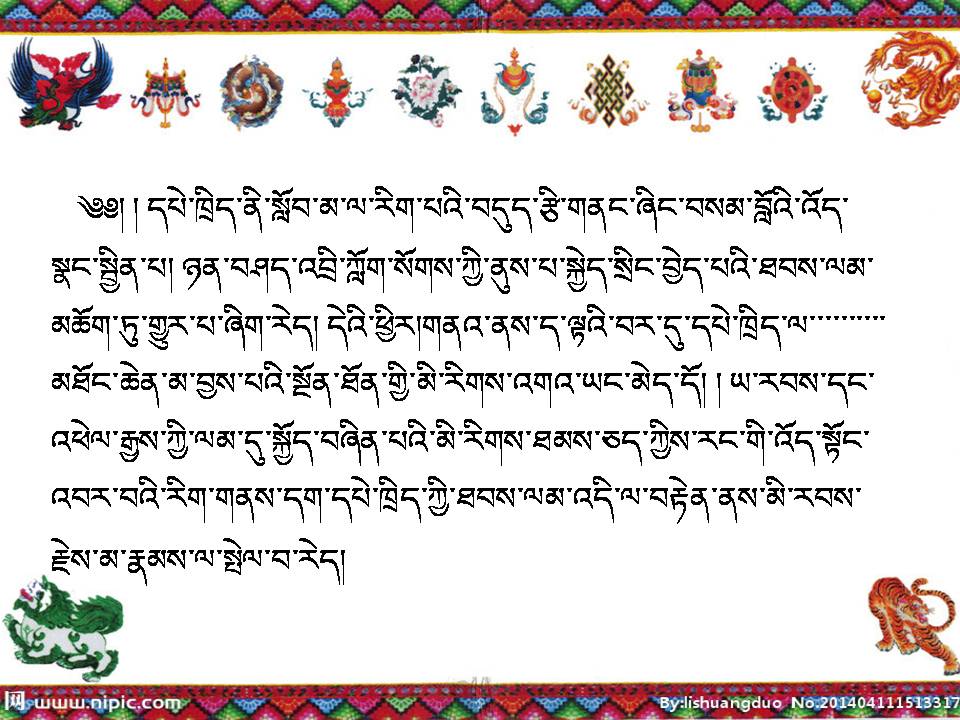 ༄༅།། དཔེ་ཁྲིད་ནི་སློབ་མ་ལ་རིག་པའི་བདུད་རྩི་གནང་ཞིང་བསམ་བློའི་འོད་
སྣང་སྦྱིན་པ། ཉན་བཤད་འབྲི་ཀློག་སོགས་ཀྱི་ནུས་པ་སྐྱེད་སྲིང་བྱེད་པའི་ཐབས་ལམ་
མཆོག་ཏུ་གྱུར་པ་ཞིག་རེད། དེའི་ཕྱིར།གནའ་ནས་ད་ལྟའི་བར་དུ་དཔེ་ཁྲིད་ལ་་་་་་་་་་་
མཐོང་ཆེན་མ་བྱས་པའི་སྔོན་ཐོན་གྱི་མི་རིགས་འགའ་ཡང་མེད་དོ། །ཡ་རབས་དང་
འཕེལ་རྒྱས་ཀྱི་ལམ་དུ་སྐྱོད་བཞིན་པའི་མི་རིགས་ཐམས་ཅད་ཀྱིས་རང་གི་འོད་སྟོང་
འབར་བའི་རིག་གནས་དག་དཔེ་ཁྲིད་ཀྱི་ཐབས་ལམ་འདི་ལ་བརྟེན་ནས་མི་རབས་
རྗེས་མ་རྣམས་ལ་སྤེལ་བ་རེད།
网 www.nipic.com
By:lishuangduo No:20140411151331​7